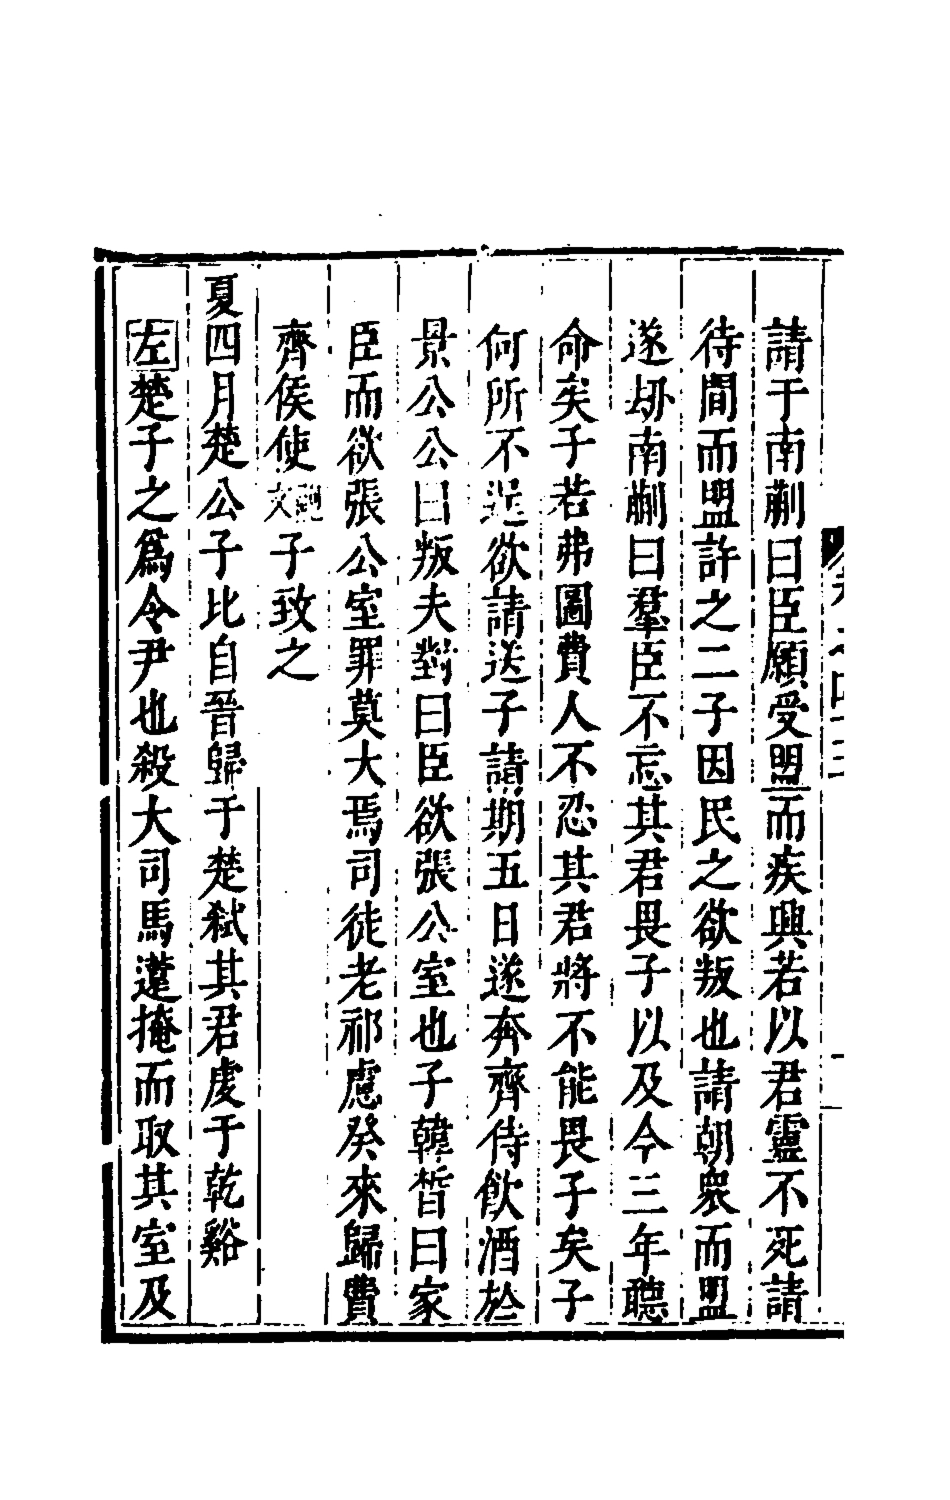 請于南蒯曰臣願受盟而疾興若以君靈不死請
待間而盟許之二子因民之欲叛也請朝衆而盟
遂刼南蒯曰羣臣不忘其君畏子以及今三年聽
命矣子若弗圖費人不忍其君將不能畏子矣子
何所不逞欲請送子請期五日遂奔齊侍飲酒於
景公公曰叛夫對曰臣欲張公室也子韓晳曰家
臣而欲張公室罪莫大焉司徒老祁慮癸來歸費
齊侯使鮑文子致之
夏四月楚公子比自晉歸于楚弑其君虔于乾谿
左楚子之爲令尹也殺大司馬薳掩而取其室及